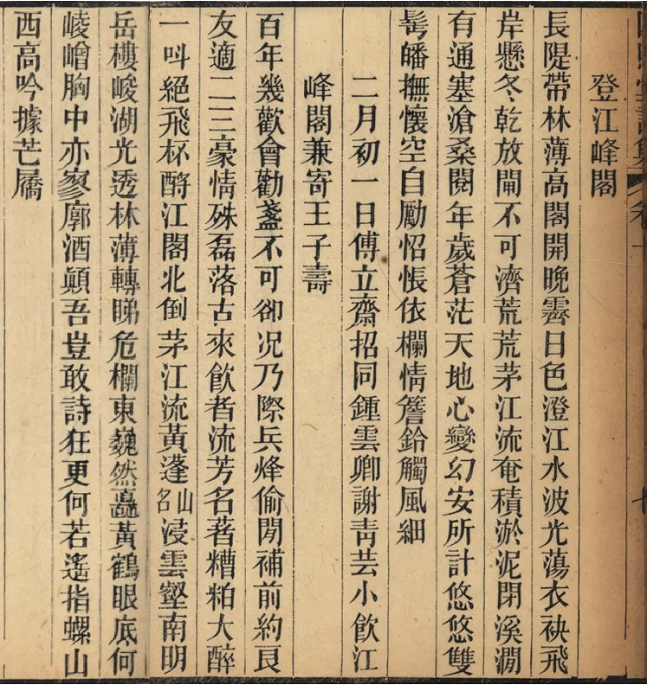 登江峰閣
長隄帶林薄高閣開晚霽日色澄江水波光蕩衣袂飛
岸懸冬乾放閘不可濟荒荒茅江流奄積淤泥閉溪澗
有通塞滄桑閱年歲蒼茫天地心變幻安所計悠悠雙
髩皤撫懷空自勵怊悵依欄情簷鈴觸風細
二月初一日傅立齋招同鍾雲卿謝靑芸小飮江
峰閣兼寄王子壽
百年幾歡會勸盞不可卻况乃際兵烽偷閒補前約良
友適二三豪情殊磊落古來飮者流芳名著糟粕大醉
一呌絕飛杯酹江閣北倒茅江流黃蓬山名浸雲壑南明
岳樓峻湖光透林薄轉睇危欄東巍然矗黃鶴眼底何
崚嶒胸中亦寥廓酒顚吾豈敢詩狂更何若遙指螺山
西高吟據芒屩